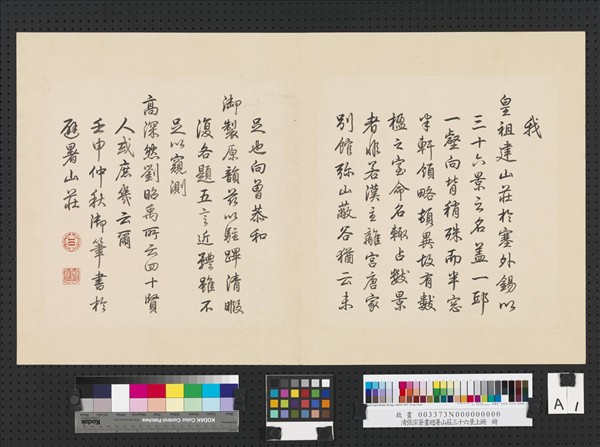 我
皇祖建山莊於塞外錫以
三十六景之名蓋一邱
一壑向背稍殊而半窓
半軒領略頓異故有數
楹之室命名輒占數景
者非若漢主離宮唐家
別館弥山蔽谷猶云未
足也向曾恭和
御製原韻茲以駐蹕清暇
復各題五言近體雖不
足以窺測
高深然劉昭禹所云四十賢
人或庶幾云爾
壬申仲秋御筆書於
避暑山莊
Kodak
KODAK Color Control Patches
故畫 003373N000000000
清張宗蒼畫避暑山莊三十六景上冊 冊
A 1